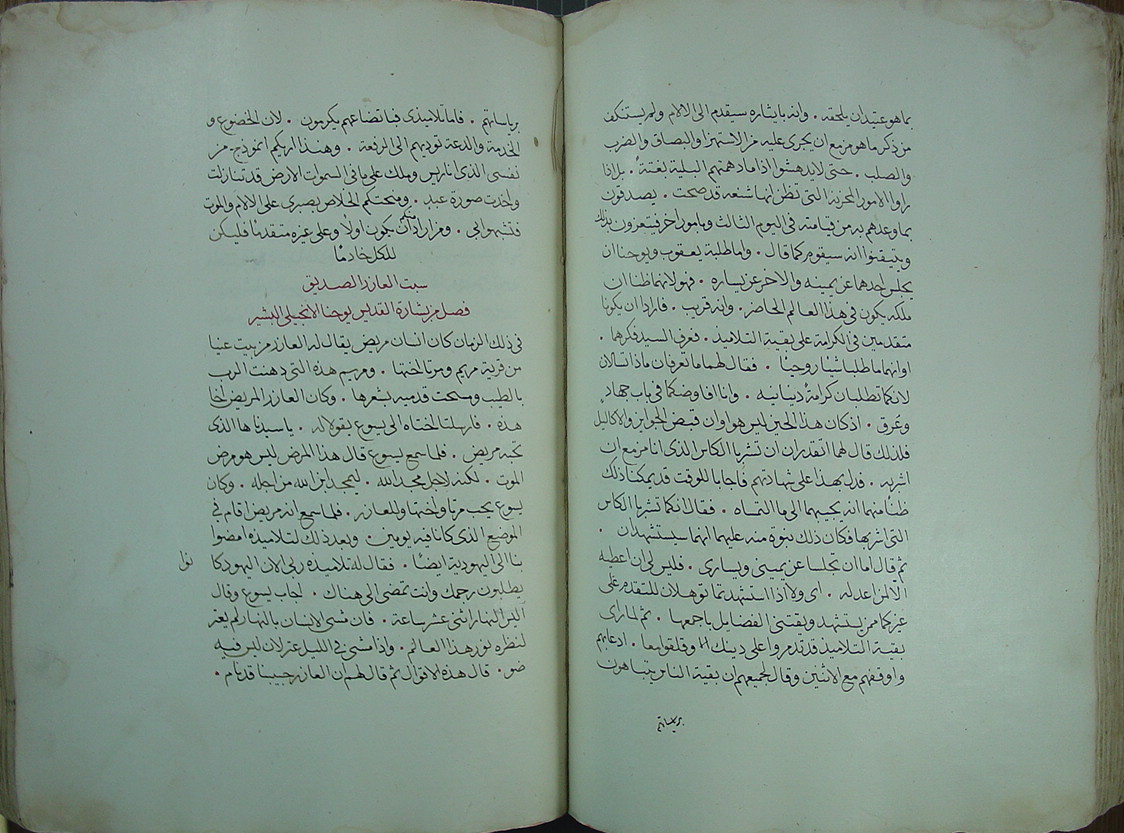 بما هو عتيد ان يلحقه . وانه بايثاره سيقدم الى الالام ولم يستنكف
من ذكر ما هو مزمع ان يجرى عليه من الاستهزا والبصاق والضرب
والصلب . حتى لا يدهشوا اذا ما دهمتهم البلية بغتة . بل اذا
راوا الامور المحزنة التى تظن انها شنعه قد صحت . يصدقون
بما وعدهم به من قيامته فى اليوم الثالث وبامور اخر فيتعزون بذلك
ويتيقنوا انه سيقوم كما قال . واما طلبة يعقوب ويوحنا ان
يجلس احدها عن يمينه والاخر عن يساره . فهو لانهما ظنا ان
ملكه يكون فى هذا العالم الحاضر . وانه قريب . فارادا ان يكونا
متقدمين فى الكرامة على بقية التلاميذ . فعرف السيد فكرهما .
اوانهما ما طلبا شيا روحيا . فقال لهما ما تعرفان ماذا تسالان
لانكما تطلبان كرامة دنيانيه . وانا افاوضكما فى باب جهاد
وعرق . اذ كان هذا الحين ليس هو اوان قبض الجوايز والاكاليل
فلذلك قال لهما اتقدران ان تشربا الكاس الذى انا مزمع ان
اشربه . فدل بهذا على شهادتهم فاجابا للوقت قد يمكنا ذلك
ظنا منهما انه يجيبهما الى ما التمساه . فقال انكما تشربا الكاس
التى اشربها فكان ذلك نبوة منه عليهما انهما سيستشهدان .
ثم قال اما ان تجلسا عن يمينى ويسارى . فليس لى ان اعطيه
الا لمن اعد له . اى ولا اذا استشهدتما توهلان للتقدم على
غيركما ممن يستشهد ويقتنى الفضايل باجمعها . ثم لما راى
بقية التلاميذ قد تذمروا على دينك وقلقوا معا . ادعاهم
واوقفهم مع الاثنين وقال لجميعهم ان بقية الناس يتباهون
برياساتهم
برياساتهم . فاما تلاميذى فباتضاعهم يكرمون . لان الخضوع و
الخدمة والدعة توديهم الى الرفعة . وهنذا اريكم انموذج من
نفسى الذى انا ريس وملك على ما فى السموات الارض قد تنازلت
واخذت صورة عبد . ومنحتكم الخلاص بصبرى على الالام والموت
فتشبهوا بى . ومن اراد منكم ان يكون اولا وعلى غيره متقدما فليكن
للكل خادما
سبت العازر الصديق
فصل من بشارة القديس يوحنا الانجيلى البشير
فى ذلك الزمان كان انسان مريض يقال له العازر من بيت عنيا
من قرية مريم ومرتا اختها . ومريم هذه التى دهنت الرب
بالطيب ومسحت قدميه بشعرها . وكان العازر المريض اخا
هذه . فارسلتا اختاه الى يسوع يقولا له . يا سيد ها الذى
تحبه مريض . فلما سمع يسوع قال هذا المرض ليس هو مرض
الموت . لكنه لاجل مجد الله . ليمجد ابن الله من اجله . وكان
يسوع يحب مرتا واختها والعازر . فلما سمع انه مريض اقام فى
الموضع الذى كان فيه يومين . وبعد ذلك لتلاميذه امضوا
بنا الى اليهودية ايضا . فقال له تلاميذه ربى الان اليهود كا
نوا
يطلبون رجمك وانت تمضى الى هناك . اجاب يسوع وقال
اليس النهار اثنى عشر ساعة . فان مشى الانسان بالنهار لم يعثر
لنظره نور هذا العالم . واذا مشى فى الليل عثر لان ليس فيه
ضو . قال هذه الاقوال ثم قال لهم ان العازر حبيبنا قد نام .